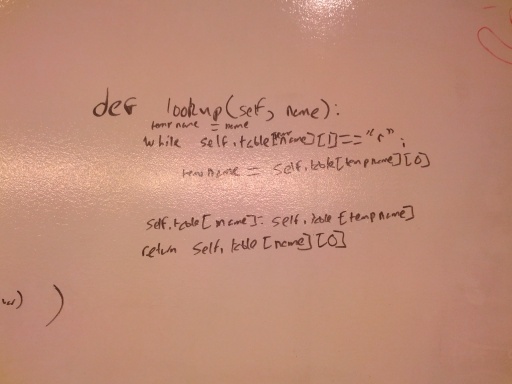 def lookup(self, name):
tempname = name
while self.table[tempname][1]=="r":
tempname = self.table[tempname][0]
self.table[name]= self.table[tempname]
return self.table[name][0]
)